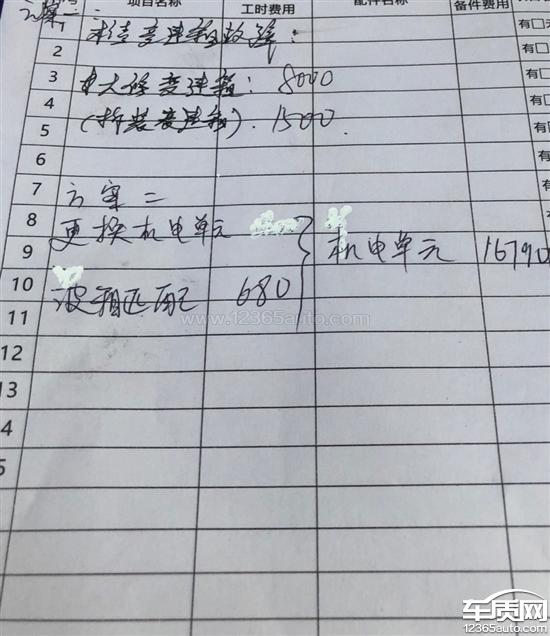 项目名称 工时费用 配件名称 备件费用
方案一:
1 检查变速箱故障: 有□
2 有□
3 大修变速箱: 8000 有□
4 (拆装变速箱). 1500 有□
5 有□
6
7 方案二
8 更换机电单元
9 机电单元 16790
10 波箱匹配 680
11
www.12365auto.com
12
13
4
5
车质网
12365auto.com